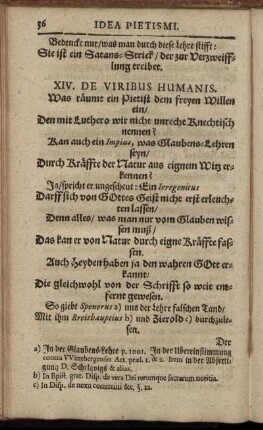 56 IDEA PIETISMI.
Bedencke nur/ was man durch diese Lehre stifft:
Sie ist ein Satans-Strick/ der zur Verzweiff-
lung treibet.
XIV. DE VIRIBUS HUMANIS.
Was räumt ein Pietist dem freyen Willen
ein/
Den mit Luthero wir nicht unrecht Knechtisch
nennen?
Kan auch ein Impius, was Glaubens-Lehren
seyn/
Durch Kräffte der Natur aus eignem Witz er-
kennen?
Ja/ spricht er ungescheut: Ein Irregenitus
Darff sich von GOttes Geist nicht erst erleuch-
ten lassen/
Denn alles/ was man nur vom Glauben wis-
sen muß/
Das kan er von Natur durch eigne Kräffte fas-
sen.
Auch Heyden haben ja den wahren GOtt er-
kannt/
Die gleichwohl von der Schrifft so weit ent-
fernt gewesen.
So giebt Spenerus a) uns der Lehre falschen Tand/
Mit ihm Breithauptius b) und Zierold c) durchzule-
sen.
Der
a) In der Glaubens-Lehre p. 1001. In der Ubereinstimmung
contra VVittebergenses Art. præl. 1. & 2. Item in der Abferti-
gung D. Schelwigs & alias.
b) In Epist. grat. Disp. de vera Dei rerumque sacrarum notitia.
c) In Disp. de nexu communi &c. §. 12.